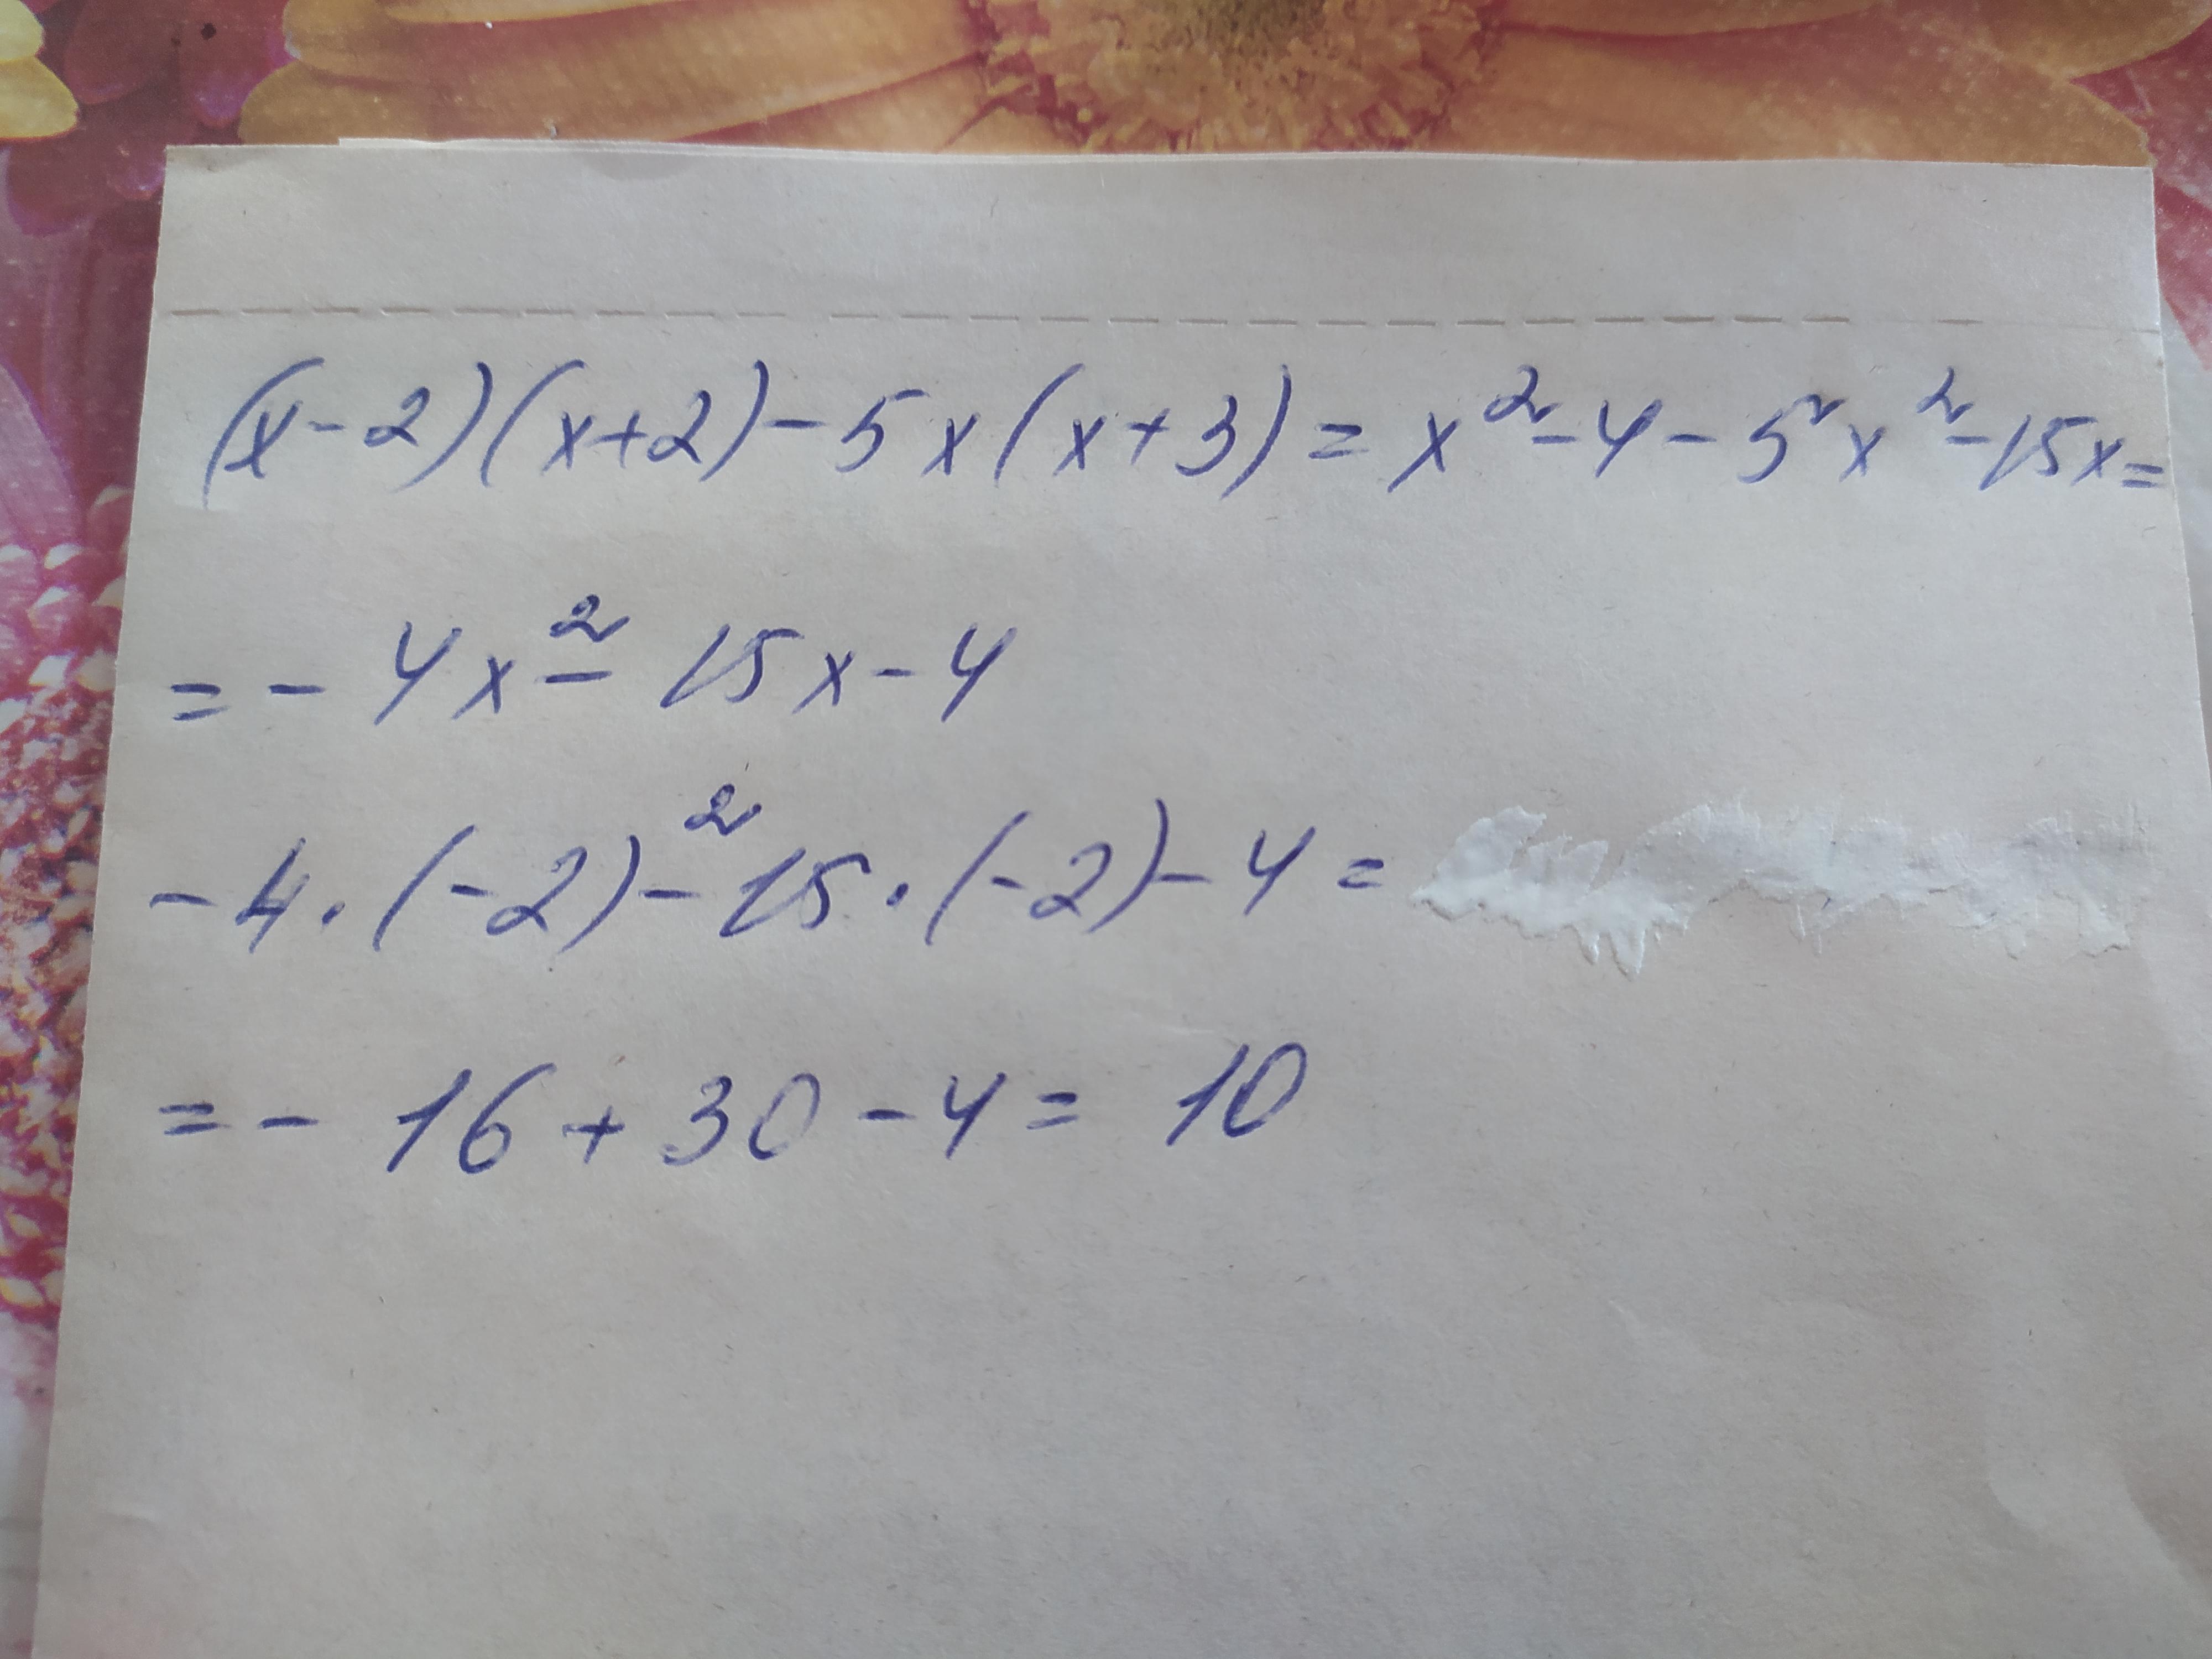 (x-2)(x+2)-5x(x+3)=x²-4-5x²-15x=
=-4x²-15x-4
-4·(-2)²-15·(-2)-4=
=-16+30-4=10